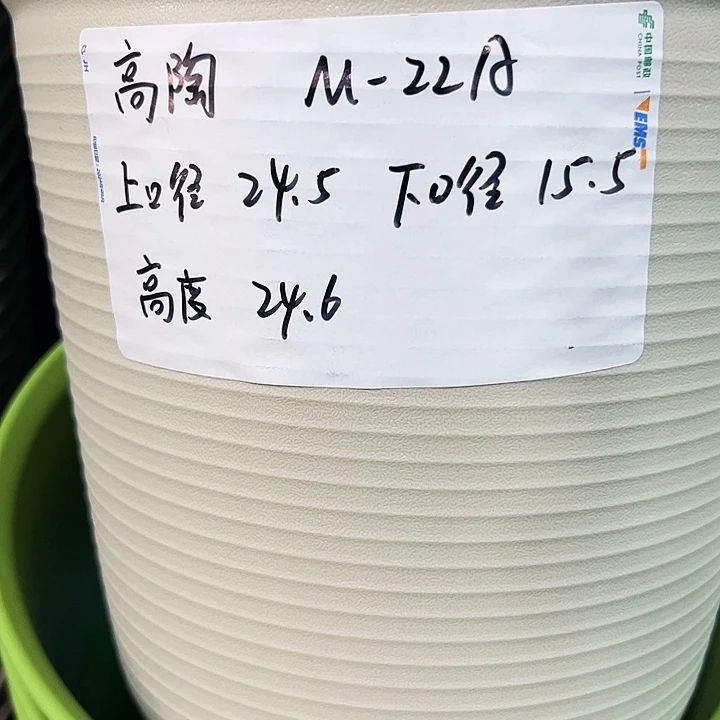 高陶 M-22A
上口径 24.5 下口径 15.5
高度 24.6
中国邮政
CHINA POST
EMS